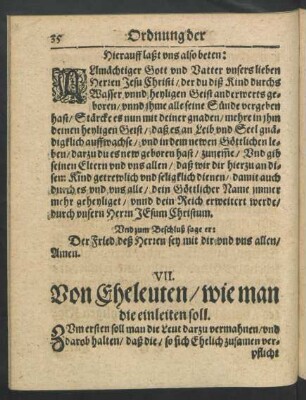 35 Ordnung der
Hierauff laßt vns also beten:
ALlmächtiger Gott vnd Vatter vnsers lieben
Herren Jesu Christi / der du diß Kind durchs
Wasser vnnd heyligen Geist anderwerts ge-
boren / vnnd ihme alle seine Sünde vergeben
hast / Stärcke es nun mit deiner gnaden / mehre in jhm
deinen heyligen Geist / daß es an Leib vnd Seel gnä-
digklich auffwachse / vnd in dem newen Göttlichen le-
ben / darzu du es new geboren hast / zuneme. Vnd gib
seinen Eltern vnd vns allen / daß wir dir hierzu an di-
sem Kind getrewlich vnd seligklich dienen / damit auch
durch es vnd vns alle / dein Göttlicher Name immer
mehr geheyliget / vnnd dein Reich erweitert werde /
durch vnsern Herrn JEsum Christum.
Vnd zum Beschluß sage er:
Der Fried / deß Herren sey mit dir vnd vns allen /
Amen.
VII.
Von Eheleuten / wie man
die einleiten soll.
ZVm ersten soll man die Leut darzu vermahnen / vnd
darob halten / daß die / so sich Ehelich zusamen ver-
pflicht